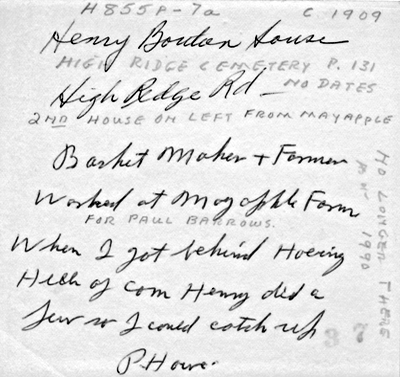 H855P-7a
C 1909
Henry Bouton House
HIGH RIDGE CEMETERY P. 131
High Redge Rd -
NO DATES
2ND HOUSE ON LEFT FROM MAYAPPLE
Basket Maker + Farmer
Worked at Mayapple Farm
FOR PAUL BARROWS.
When I got behind Hoeing
Hills of corn Henry did a
few so I could catch up
P. Howe
NO LONGER THERE
1990